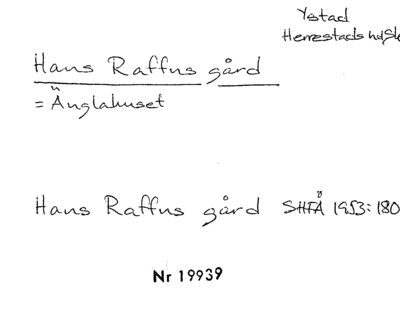 Ystad
Herrestads hd, Sk
Hans Raffns gård
= Änglahuset
Hans Raffns gård SHFÅ 1953:180
Nr 19939